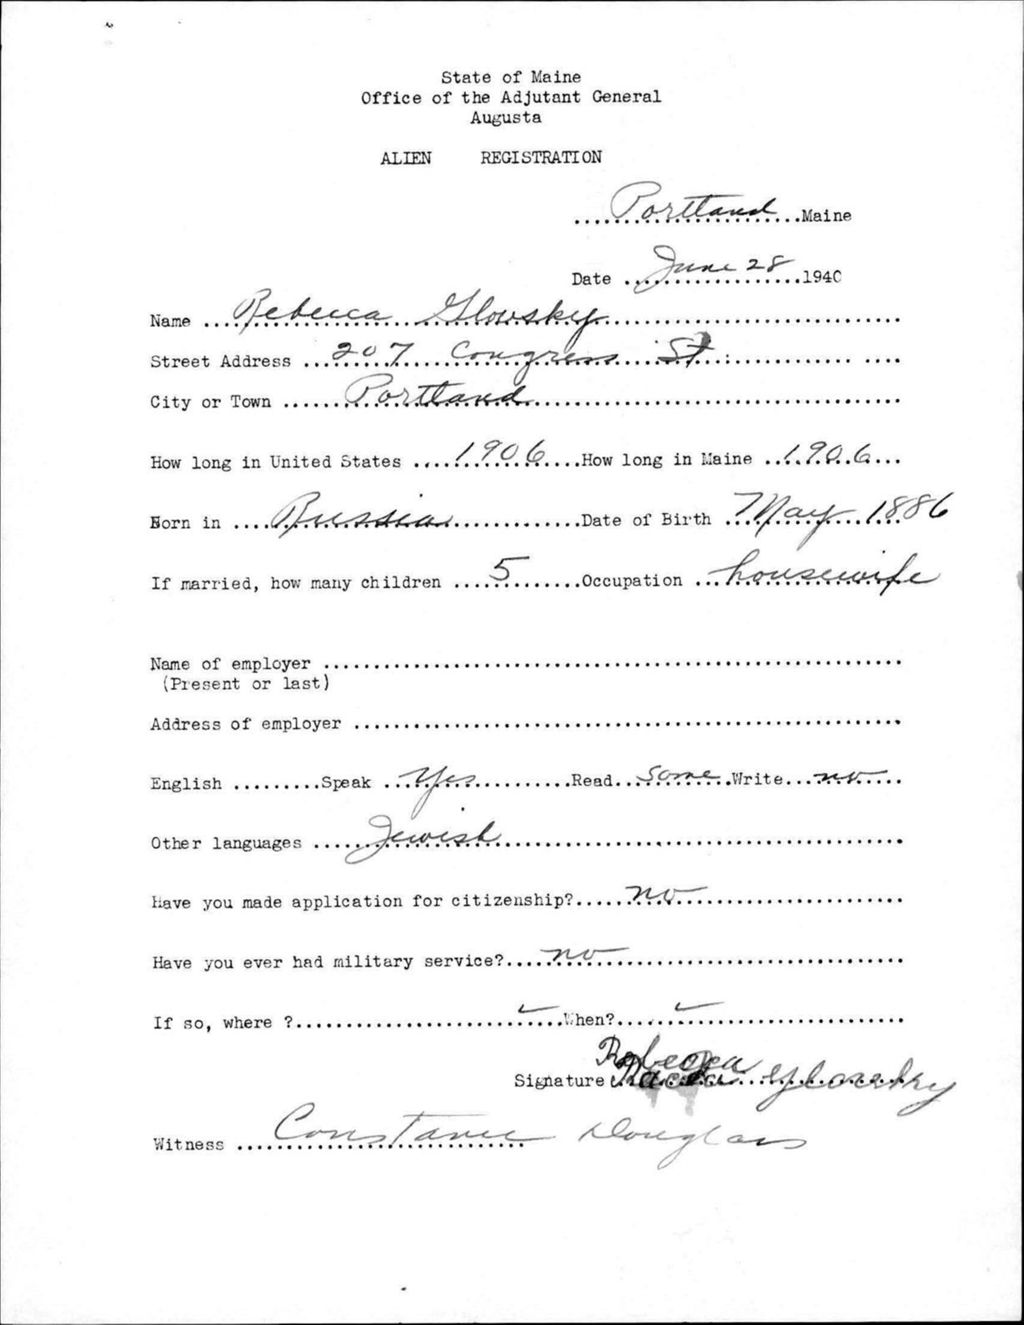 State of Maine
Office of the Adjutant General
Augusta
ALIEN REGISTRATION
....Portland....Maine
Date ....June 28....1940
Name ....Rebecca Glowsky....
Street Address ....207 Congress St....
City or Town ....Portland....
How long in United States ....1906....How long in Maine ....1906....
Born in ....Russia....Date of Birth ....May 1886
If married, how many children ....5....Occupation ....housewife
Name of employer ....
(Present or last)
Address of employer ....
English ....Speak ....Yes....Read....Some....Write....no....
Other languages ....Jewish....
Have you made application for citizenship?....no....
Have you ever had military service?....no....
If so, where ?....✓....When?....✓....
Signature Rebecca Glowsky
Witness ....Constance Douglass